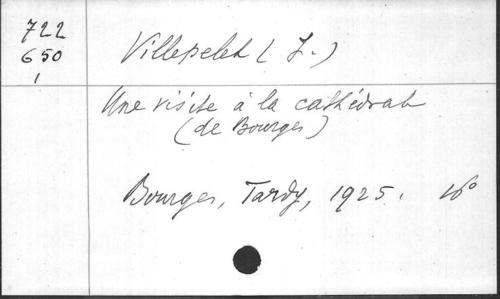 722
650
1
Villepelet (J.)
Une visite à la cathédrale
(de Bourges)
Bourges, Tardy, 1925. 16°